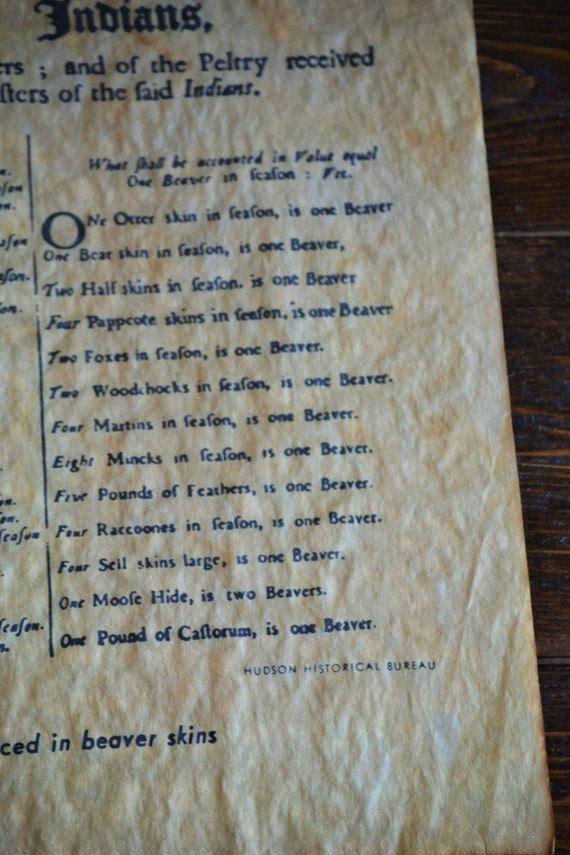 Indians.
ers ; and of the Peltry received
ſters of the ſaid Indians.
What ſhall be accounted in Value equal
One Beaver in ſeaſon : Viz.
ONe Otter skin in ſeaſon, is one Beaver
One Bear skin in ſeaſon, is one Beaver,
Two Half skins in ſeaſon. is one Beaver
Four Pappcote skins in ſeaſon, is one Beaver
Two Foxes in ſeaſon, is one Beaver.
Two Woodchocks in ſeaſon, is one Beaver.
Four Martins in ſeaſon, is one Beaver.
Eight Mincks in ſeaſon, is one Beaver.
Five Pounds of Feathers, is one Beaver.
Four Raccoones in ſeaſon, is one Beaver.
Four Seil skins large, is one Beaver.
One Mooſe Hide, is two Beavers.
One Pound of Caſtorum, is one Beaver.
HUDSON HISTORICAL BUREAU
ced in beaver skins